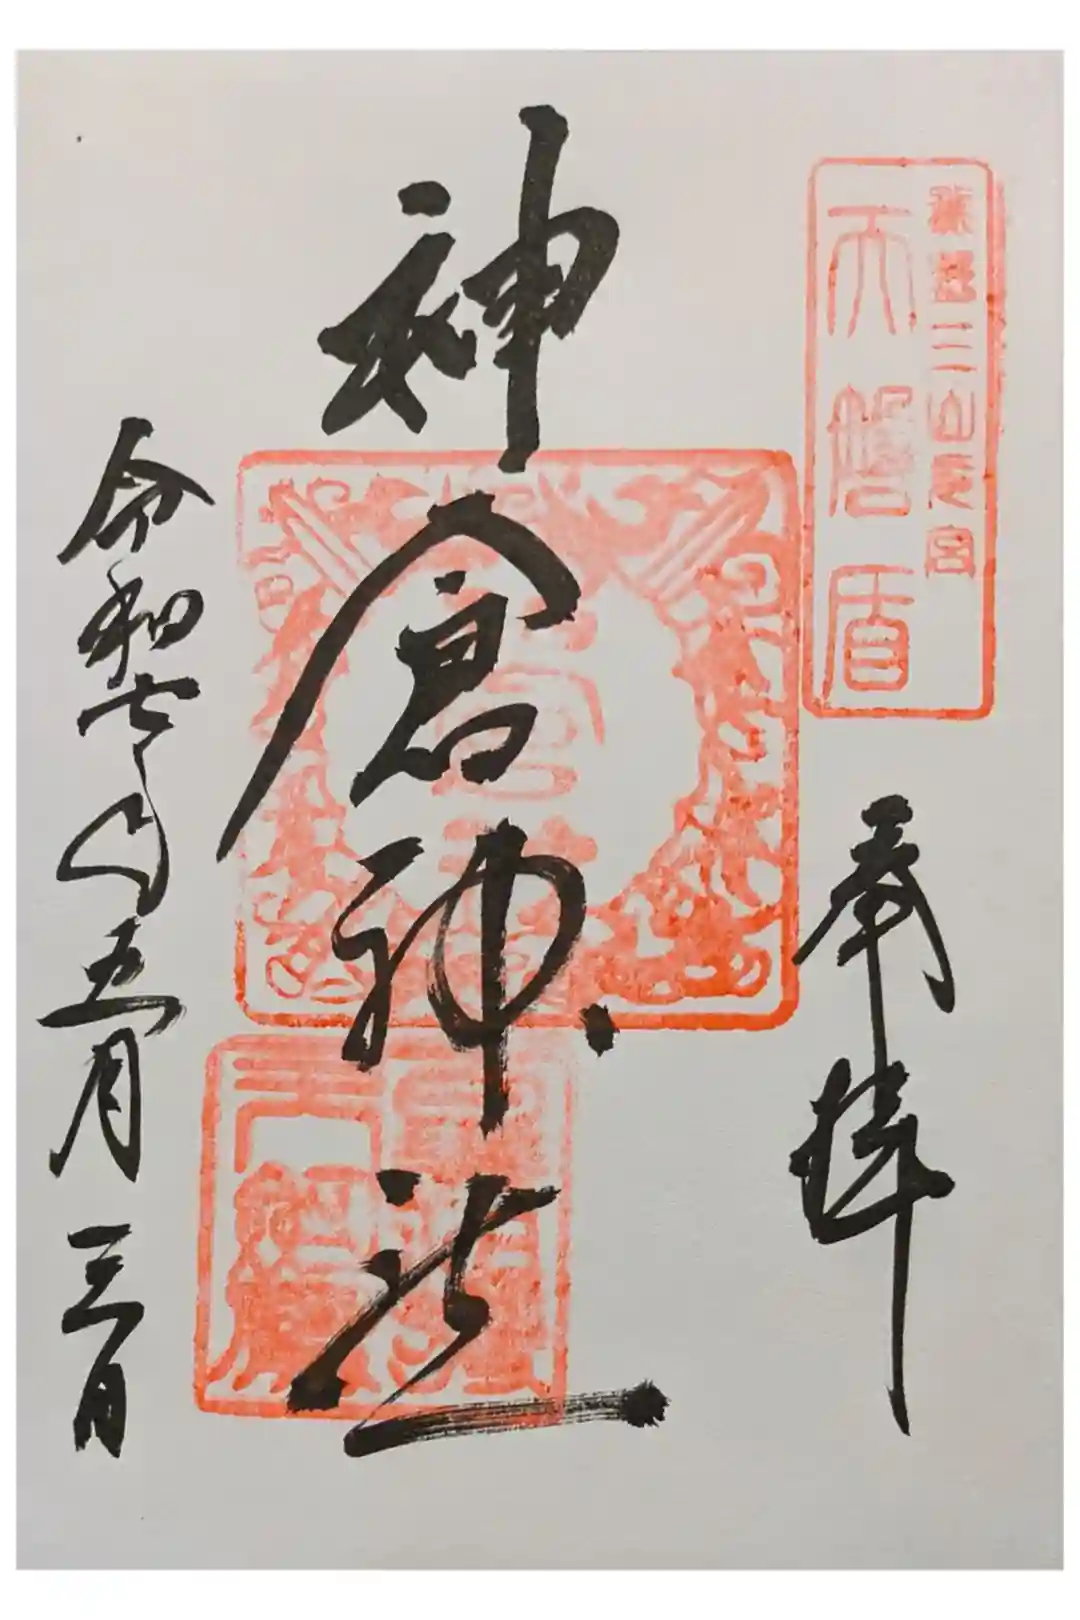 奉拝
熊野三山元宮
天磐盾
神倉神社
令和七年五月三日